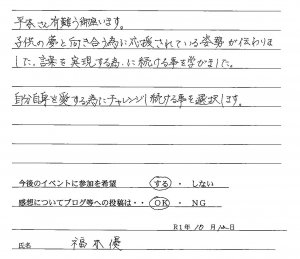 平本さん有難う御座います。
子供の夢と向き合う為に応援されている姿勢が伝わりま
した。言葉を実現する為に続ける事を学びました。
自分自身を愛する為にチャレンジし続ける事を選択します。
今後のイベントに参加を希望 する ・ しない
感想についてブログ等への投稿は・・ OK ・ NG
R1年 10月 日
氏名 福本優